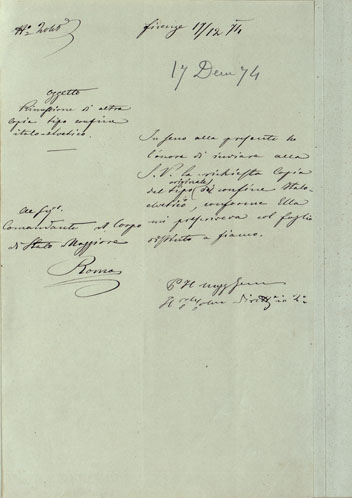 Firenze 17/12 74
17 Dem 74
Oggetto
Rimessione di altra
copia tipo confine
italo-elvetico.
In seno alla presente ho
l'onore di inviare alla
S.V. la richiesta Copia
originale
del tipo di confine Italo
elvetico, conforme Ella
mi prescriveva col foglio
a fianco.
Al Sigr.
Comandante il Corpo
di Stato Maggiore
Roma